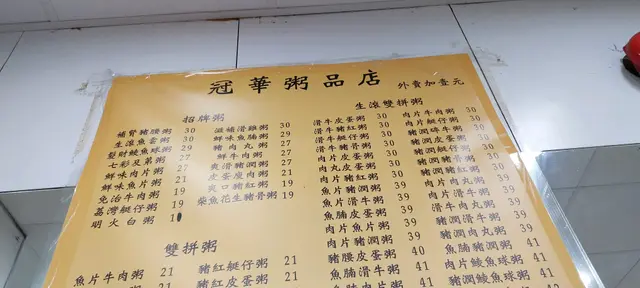 冠華粥品店
外賣加壹元
招牌粥
補腎豬腰粥 30
生滾魚雲粥 30
發財鯪魚球粥 29
七彩及第粥 27
鮮味肉片粥 21
鮮味魚片粥 21
免治牛肉粥 19
荔灣艇仔粥 19
明火白粥
滋補滑雞粥 30
鮮味魚腩粥 29
豬肉丸粥 27
鮮牛肉粥 27
爽滑豬潤粥 21
皮蛋瘦肉粥 21
爽口豬紅粥 19
柴魚花生豬骨粥 19
雙拼粥
魚片牛肉粥 21
豬紅艇仔粥 21
豬紅皮蛋粥 21
生滾雙拼粥
滑牛皮蛋粥 30
滑牛豬紅粥 30
滑牛艇仔粥 30
肉片皮蛋粥 30
肉丸皮蛋粥 30
肉片豬紅粥 30
魚片豬潤粥 39
魚片滑牛粥 39
魚腩皮蛋粥 39
魚片肉片粥 39
肉片豬潤粥 39
豬腰皮蛋粥 40
魚腩滑牛粥 41
肉片牛肉粥 30
肉片艇仔粥 30
豬潤艇仔粥 30
豬潤豬骨粥 30
魚片肉丸粥 39
肉片滑牛粥 39
滑牛肉丸粥 39
豬潤滑牛粥 39
豬潤肉丸粥 39
魚腩豬潤粥 41
肉片鯪魚球粥 41
豬潤鯪魚球粥 41